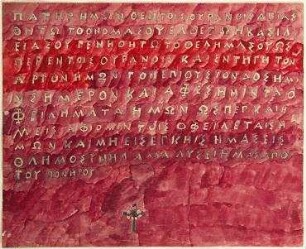 ΠΑΤΕΡ ΗΜΩΝ Ο ΕΝ ΤΟΙΣ ΟΥΡΑΝΟΙΣ ΑΓΙΑΣ
ΘΗΤΩ ΤΟ ΟΝΟΜΑ ΣΟΥ ΕΛΘΕΤΩ Η ΒΑΣΙΛ
ΕΙΑ ΣΟΥ ΓΕΝΗΘΗΤΩ ΤΟ ΘΕΛΗΜΑ ΣΟΥ ΩΣ
ΕΝ ΟΥΡΑΝΩ ΚΑΙ ΕΠΙ ΤΗΣ ΓΗΣ ΤΟΝ
ΑΡΤΟΝ ΗΜΩΝ ΤΟΝ ΕΠΙΟΥΣΙΟΝ ΔΟΣ ΗΜ
ΙΝ ΣΗΜΕΡΟΝ ΚΑΙ ΑΦΕΣ ΗΜΙΝ ΤΑ Ο
ΦΕΙΛΗΜΑΤΑ ΗΜΩΝ ΩΣ ΚΑΙ Η
ΜΕΙΣ ΑΦΙΕΜΕΝ ΤΟΙΣ ΟΦΕΙΛΕΤΑΙΣ Η
ΜΩΝ ΚΑΙ ΜΗ ΕΙΣΕΝΕΓΚΗΣ ΗΜΑΣ ΕΙΣ
ΑΛΛΑ ΡΥΣΑΙ ΗΜΑΣ ΑΠΟ
ΤΟΥ ΠΟΝΗΡΟΥ